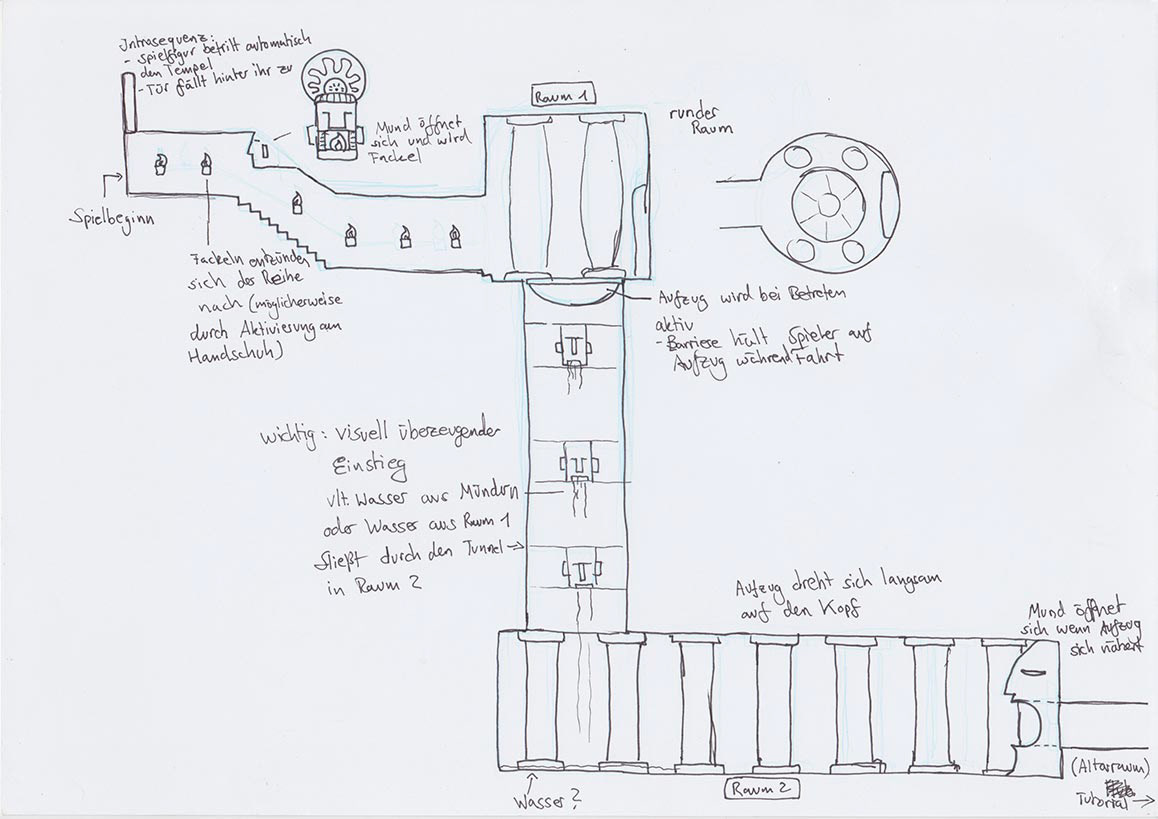 Introsequenz:
- Spielfigur betritt automatisch
den Tempel
- Tür fällt hinter ihr zu
Mund öffnet
sich und wird
Fackel
Raum 1
runder
Raum
Spielbeginn
Fackeln entzünden
sich der Reihe
nach (möglicherweise
durch Aktivierung am
Handschuh)
Aufzug wird bei Betreten
aktiv
- Barriere hält Spieler auf
Aufzug während Fahrt
wichtig: visuell überzeugender
Einstieg
vlt. Wasser aus Mündern
oder Wasser aus Raum 1
fließt durch den Tunnel →
in Raum 2
Aufzug dreht sich langsam
auf den Kopf
Mund öffnet
sich wenn Aufzug
sich nähert
(Altarraum)
Tutorial →
Raum 2
Wasser?